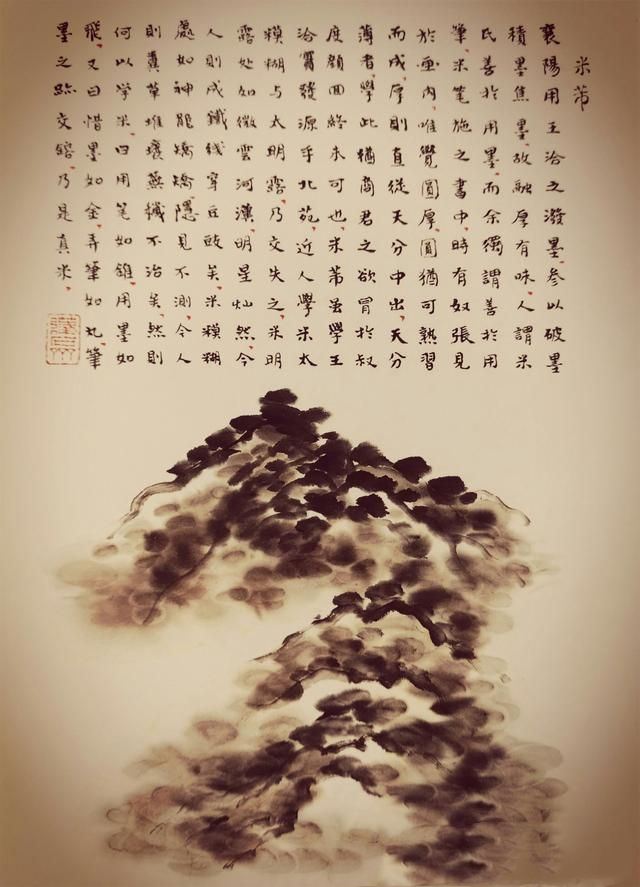 米芾
襄陽用王洽之潑墨參以破墨
積墨焦墨故融厚有味人謂米
氏善於用墨而余獨謂善於用
筆米笔施之書中時有奴張見
於画内唯覺圓厚圓猶可熟習
而成厚則直從天分中出天分
薄者學此猶商君之欲冒於叔
度顔回終未可也米芾虽學王
洽實發源乎北苑近人學米太
模糊与太明露乃交失之米明
露处如微雲河漢明星灿然今
人則成鐵线穿丘豉矣米模糊
處如神龍矯矯隱見不測今人
則糞草堆壞蕪穢不治矣然則
何以学米曰用笔如錐用墨如
飛又曰惜墨如金弄筆如丸筆
墨之跡交鎔乃是真米